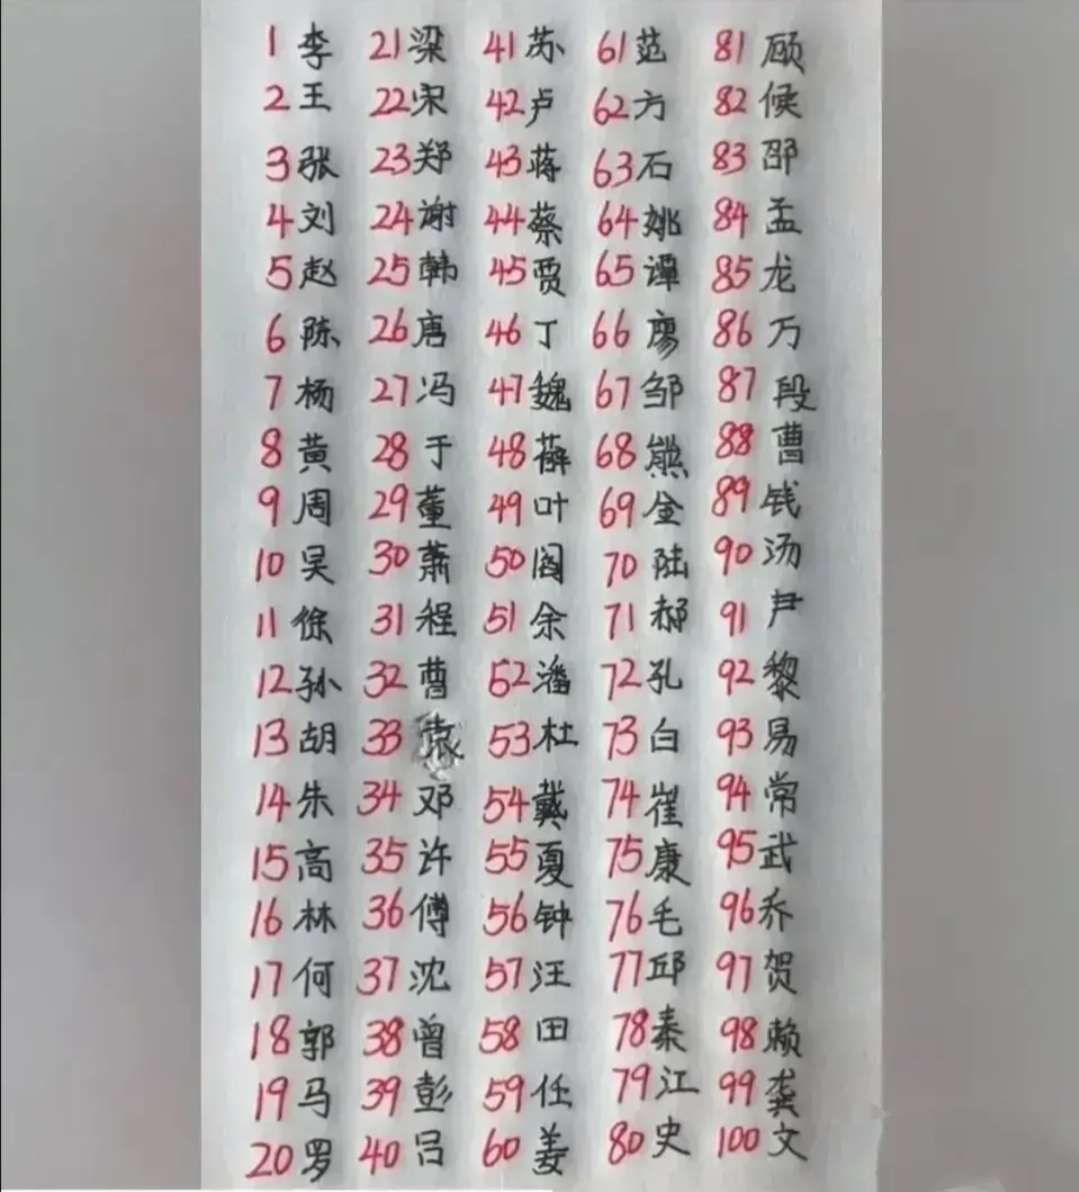 1 李
2 王
3 张
4 刘
5 赵
6 陈
7 杨
8 黄
9 周
10 吴
11 徐
12 孙
13 胡
14 朱
15 高
16 林
17 何
18 郭
19 马
20 罗
21 梁
22 宋
23 郑
24 谢
25 韩
26 唐
27 冯
28 于
29 董
30 萧
31 程
32 曹
33 袁
34 邓
35 许
36 傅
37 沈
38 曾
39 彭
40 吕
41 苏
42 卢
43 蒋
44 蔡
45 贾
46 丁
47 魏
48 薛
49 叶
50 阎
51 余
52 潘
53 杜
54 戴
55 夏
56 钟
57 汪
58 田
59 任
60 姜
61 范
62 方
63 石
64 姚
65 谭
66 廖
67 邹
68 熊
69 金
70 陆
71 郝
72 孔
73 白
74 崔
75 康
76 毛
77 邱
78 秦
79 江
80 史
81 顾
82 候
83 邵
84 孟
85 龙
86 万
87 段
88 曹
89 钱
90 汤
91 尹
92 黎
93 易
94 常
95 武
96 乔
97 贺
98 赖
99 龚
100 文